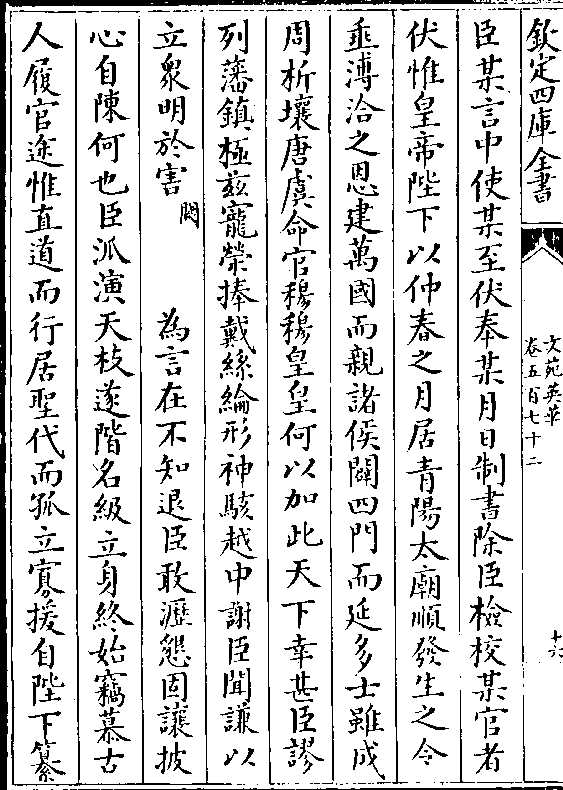 欽定四庫全書
文苑英華
卷五百七十二
十六
臣某言中使某至伏奉某月日制書除臣檢校某官者
伏惟皇帝陛下以仲春之月居青陽太廟順發生之令
垂溥洽之恩建萬國而親諸侯闢四門而延多士雖成
周析壤唐虞命官穆穆皇皇何以加此天下幸甚臣謬
列藩鎮極兹寵榮捧戴絲綸形神駭越中謝臣聞謙以
立衆明於害闕為言在不知退臣敢瀝懇固讓披
心自陳何也臣派演天枝遂階名級立身終始竊慕古
人履官途惟直道而行居聖代而孤立寡援自陛下纂